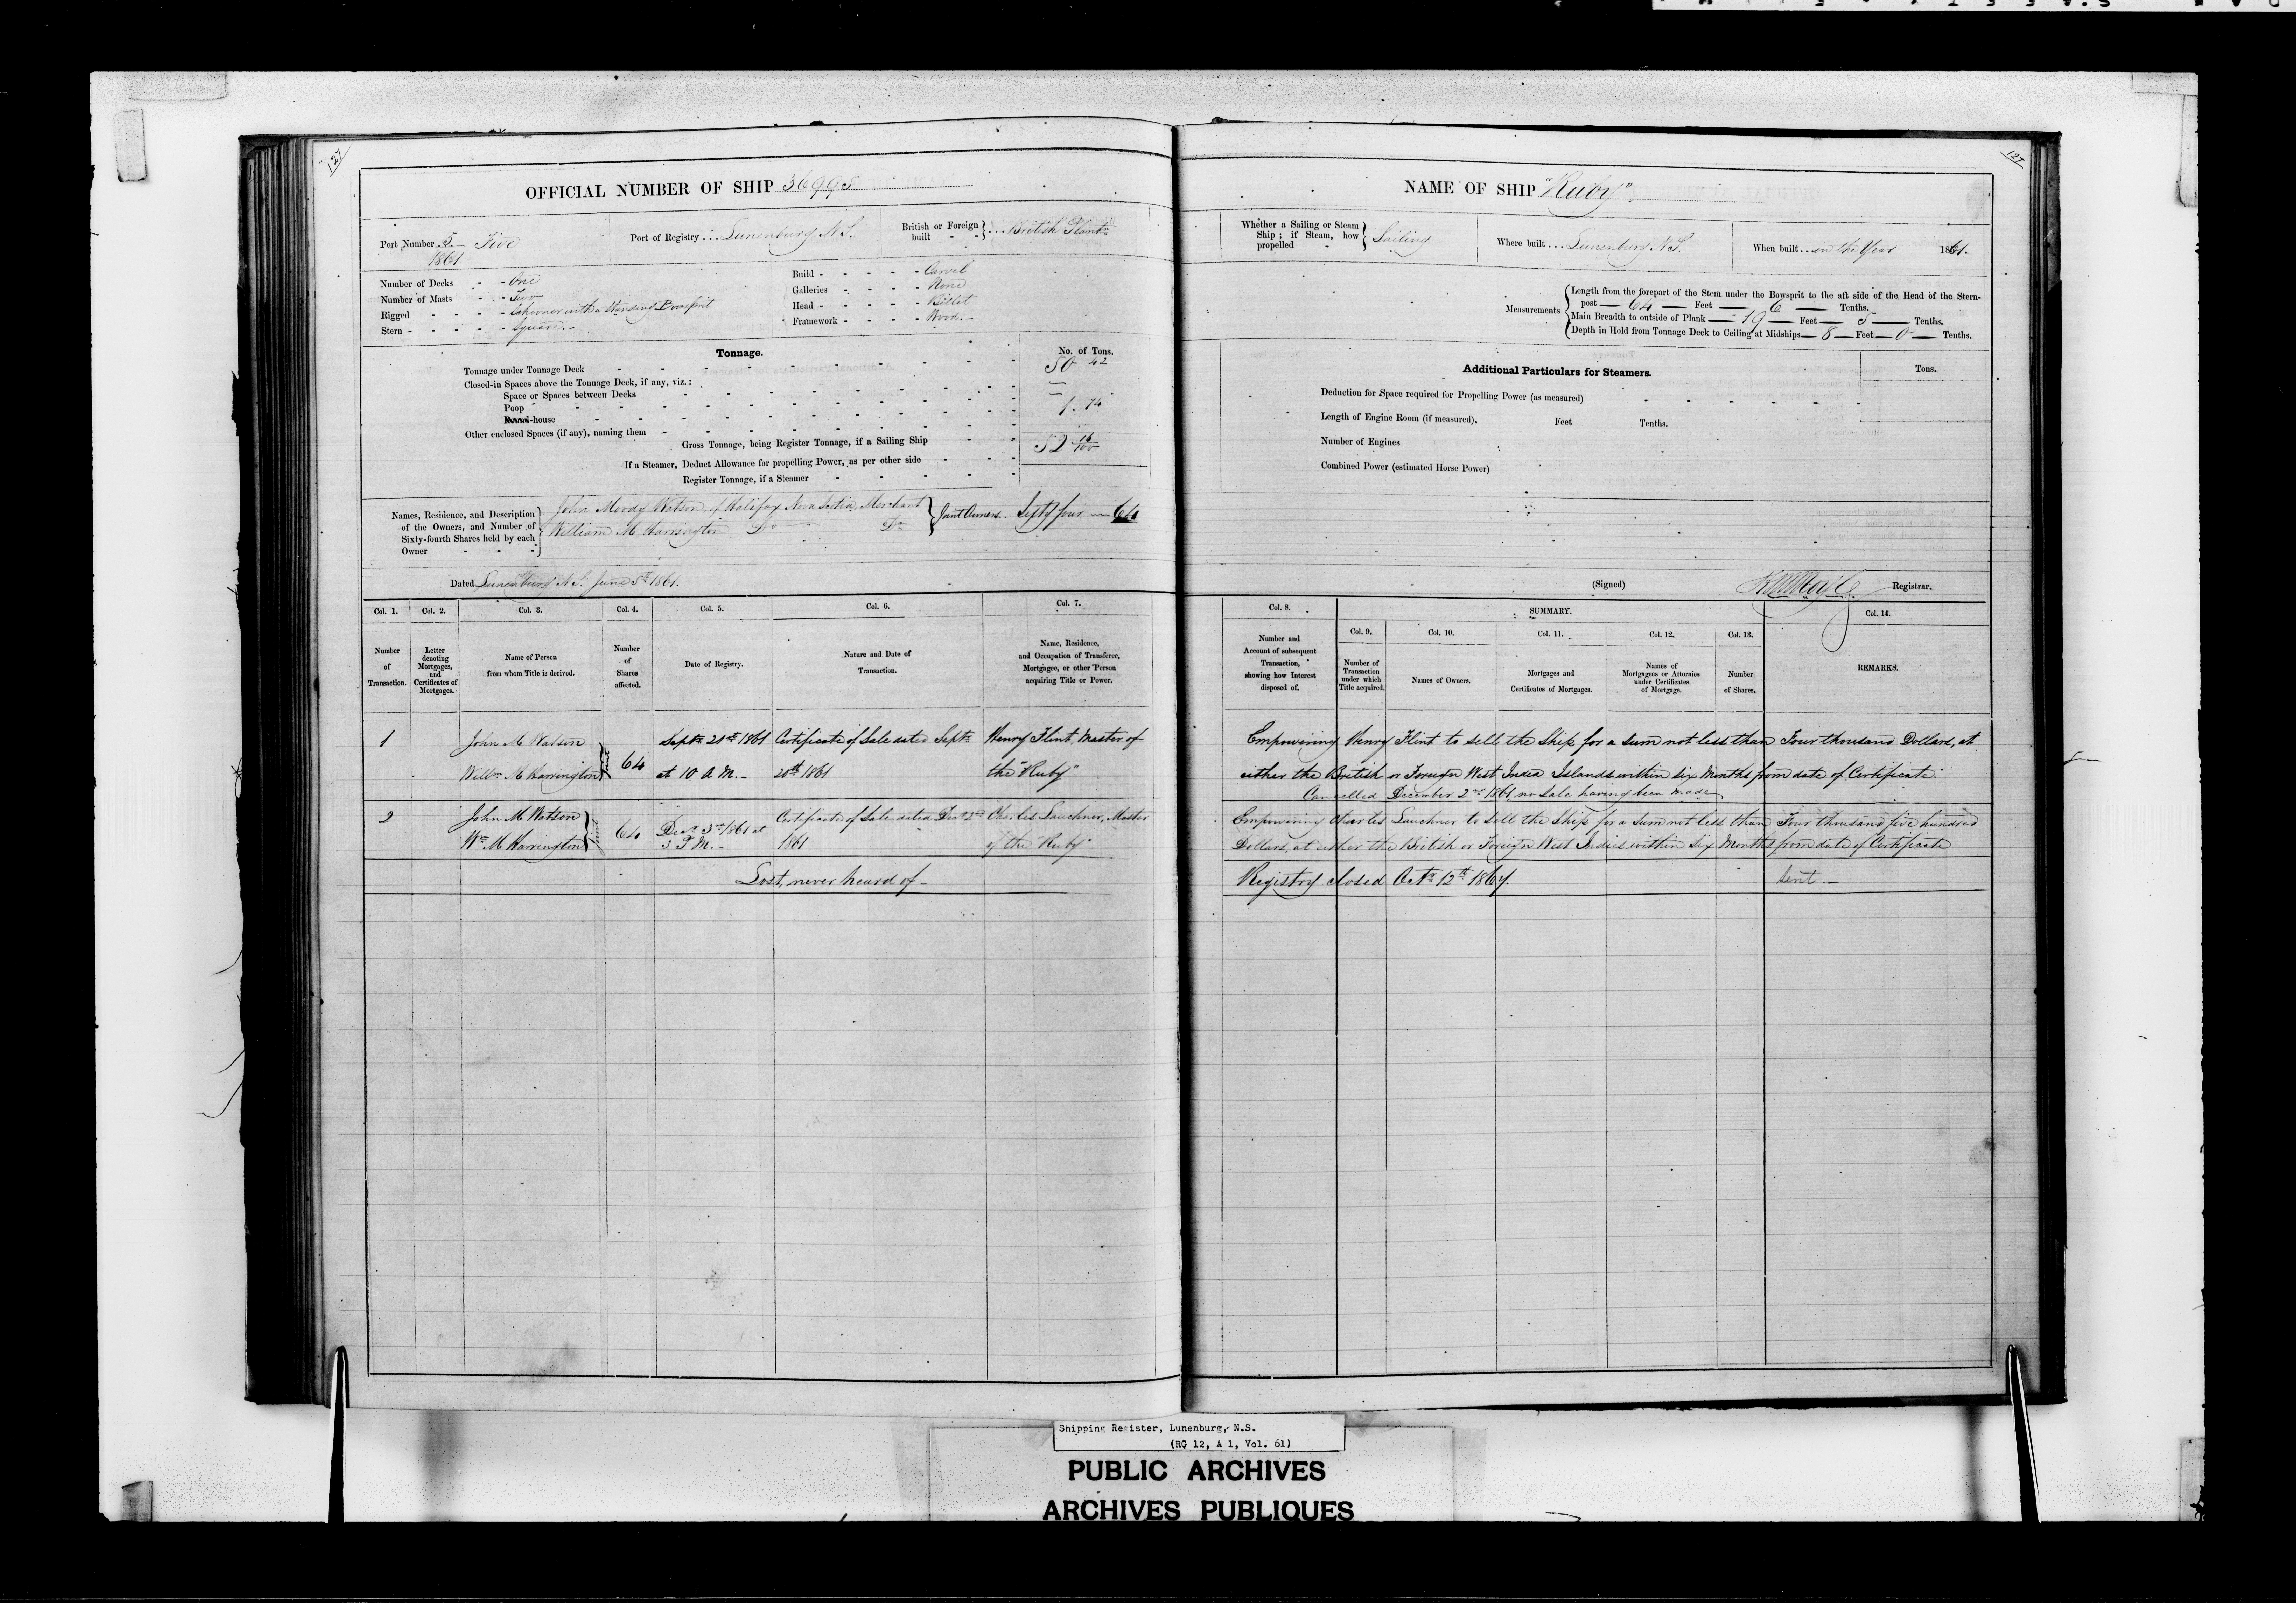 127
OFFICIAL NUMBER OF SHIP 36998
Port Number 5 Five
1861
Port of Registry Lunenburg N.S.
British or Foreign built British Plant.
Number of Decks - - One
Number of Masts - - Two
Rigged - - - - Schooner with a Standing Bowsprit
Stern - - - - - Square
Build - - - - - Carvel
Galleries - - - - None
Head - - - - - Billet
Framework - - - - Wood.
Tonnage.
No. of Tons.
Tonnage under Tonnage Deck 50 42
Closed-in Spaces above the Tonnage Deck, if any, viz.:
Space or Spaces between Decks
Poop 1.74
-house
Other enclosed Spaces (if any), naming them
Gross Tonnage, being Register Tonnage, if a Sailing Ship 52 16/100
If a Steamer, Deduct Allowance for propelling Power, as per other side
Register Tonnage, if a Steamer
Names, Residence, and Description of the Owners, and Number of Sixty-fourth Shares held by each Owner
John Moody Watson, of Halifax Nova Scotia, Merchant
William M Harrington Do Do
Joint Owners. Sixty four — 64
Dated Lunenburg N.S. June 5th 1861.
Col. 1. Col. 2. Col. 3. Col. 4. Col. 5. Col. 6. Col. 7.
Number of Transaction.
Letter denoting Mortgages, and Certificates of Mortgages.
Name of Person from whom Title is derived.
Number of Shares affected.
Date of Registry.
Nature and Date of Transaction.
Name, Residence, and Occupation of Transferee, Mortgagee, or other Person acquiring Title or Power.
1 John M Watson Septr 21st 1861 Certificate of Sale dated Septr Henry Flint, Master of
Willm M Harrington 64 at 10 A.M. 20th 1861 the "Ruby"
2 John M Watson 64 Decr 3rd 1861 at Certificate of Sale dated Decr 2nd Charles Lauchner, Master
Wm M Harrington 3 P.M. 1861 of the "Ruby"
Lost, never heard of
127
NAME OF SHIP "Ruby".
Whether a Sailing or Steam Ship; if Steam, how propelled Sailing
Where built Lunenburg N.S.
When built in the Year 1861.
Measurements
Length from the forepart of the Stem under the Bowsprit to the aft side of the Head of the Stern-
post — 64 — Feet — 6 — Tenths.
Main Breadth to outside of Plank — 19 — Feet — 5 — Tenths.
Depth in Hold from Tonnage Deck to Ceiling at Midships — 8 — Feet — 0 — Tenths.
Additional Particulars for Steamers.
Tons.
Deduction for Space required for Propelling Power (as measured)
Length of Engine Room (if measured), Feet Tenths.
Number of Engines
Combined Power (estimated Horse Power)
(Signed) Registrar.
Col. 8. SUMMARY. Col. 14.
Col. 9. Col. 10. Col. 11. Col. 12. Col. 13.
Number and Account of subsequent Transaction, showing how Interest disposed of.
Number of Transaction under which Title acquired.
Names of Owners.
Mortgages and Certificates of Mortgages.
Names of Mortgagees or Attornies under Certificates of Mortgage.
Number of Shares.
REMARKS.
Empowering Henry Flint to sell the Ship for a sum not less than Four thousand Dollars, at
either the British or Foreign West India Islands within six Months from date of Certificate.
Cancelled December 2nd 1861, no sale having been made
Empowering Charles Lauchner to sell the Ship for a sum not less than Four thousand five hundred
Dollars, at either the British or Foreign West Indies within six Months from date of Certificate
Registry closed Octr 12th 1867. Sent.
Shipping Register, Lunenburg, N.S.
(RG 12, A 1, Vol. 61)
PUBLIC ARCHIVES
ARCHIVES PUBLIQUES